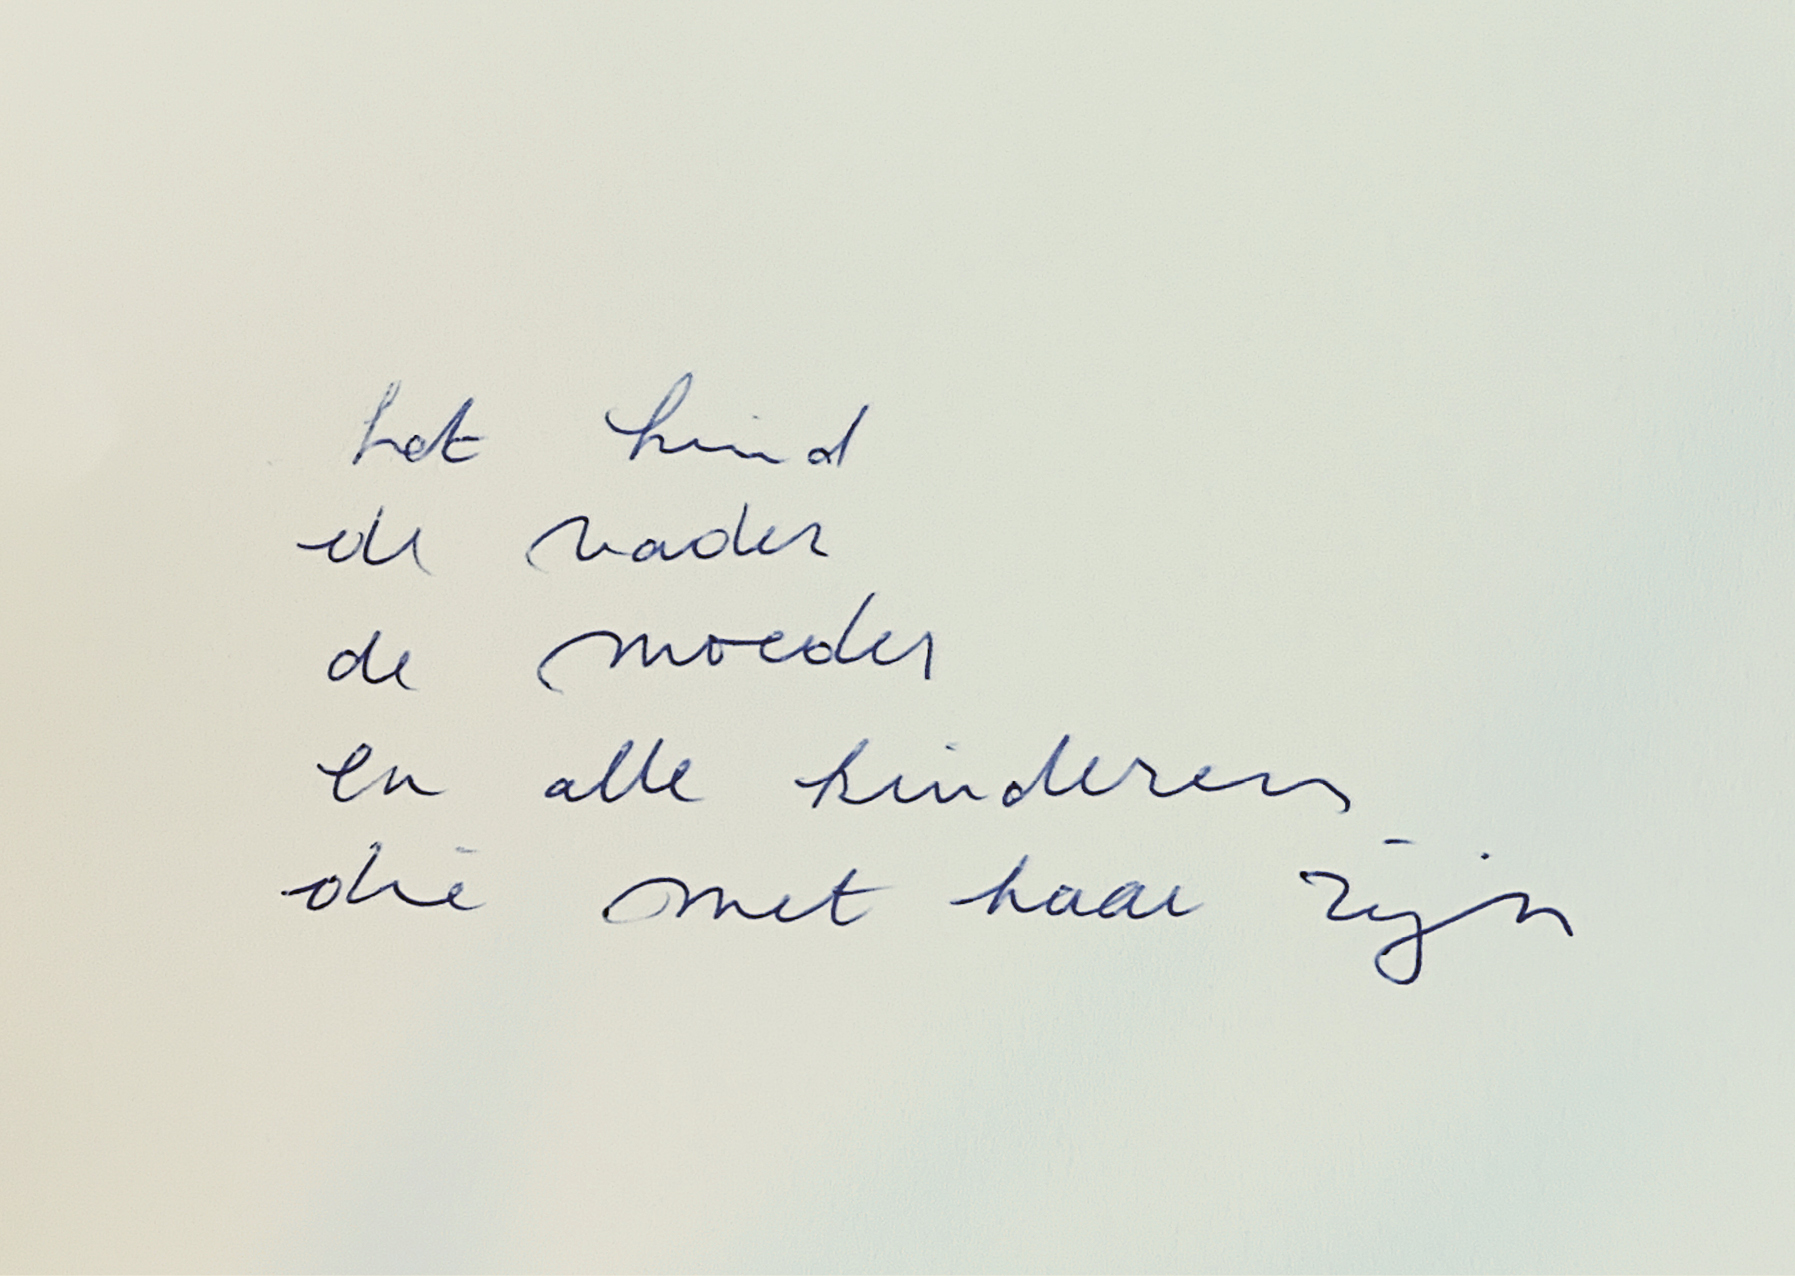 het kind
de vader
de moeder
en alle kinderen
die met haar zijn